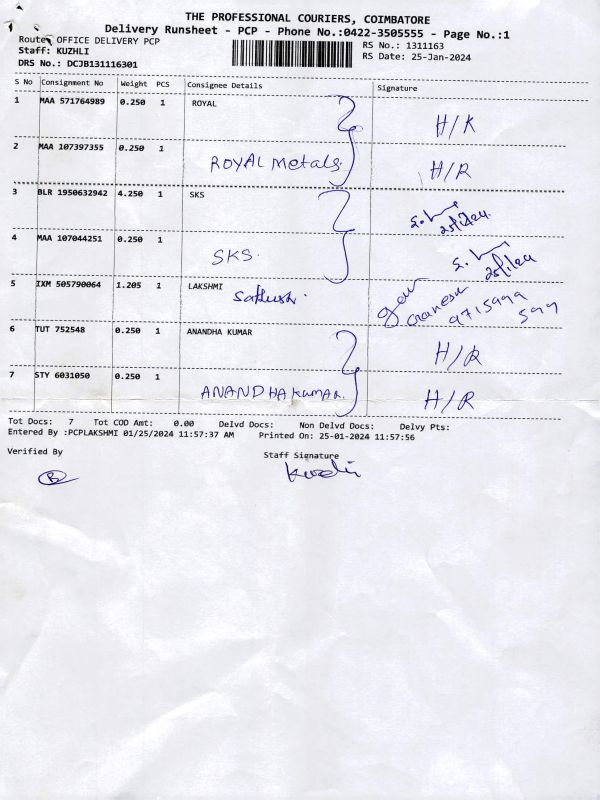 THE PROFESSIONAL COURIERS, COIMBATORE
Delivery Runsheet - PCP - Phone No.:0422-3505555 - Page No.:1
Route: OFFICE DELIVERY PCP
Staff: KUZHLI
DRS No.: DCJB131116301
RS No.: 1311163
RS Date: 25-Jan-2024
S No Consignment No Weight PCS Consignee Details Signature
1 MAA 571764989 0.250 1 ROYAL
H/K
2 MAA 107397355 0.250 1
ROYAL Metals H/R
3 BLR 1950632942 4.250 1 SKS
25/1/24
4 MAA 107044251 0.250 1
SKS. 25/1/24
5 IXM 505790064 1.205 1 LAKSHMI
Ganesh
9715999
599
6 TUT 752548 0.250 1 ANANDHA KUMAR
H/R
7 STY 6031050 0.250 1
ANANDHA Kumar. H/R
Tot Docs: 7 Tot COD Amt: 0.00 Delvd Docs: Non Delvd Docs: Delvy Pts:
Entered By :PCPLAKSHMI 01/25/2024 11:57:37 AM Printed On: 25-01-2024 11:57:56
Verified By Staff Signature